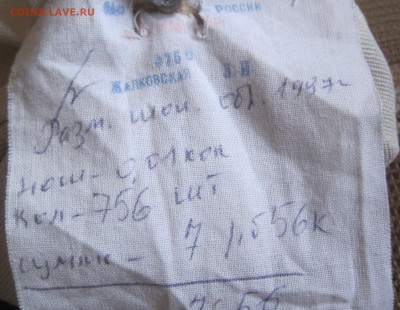 COINS.LAVE.RU
РОССИИ
Жалковская
Разм. мон. об. 1937г
нош - 0,01 коп
Кол - 756 шт
сумма - 7 р. 56к
7=56